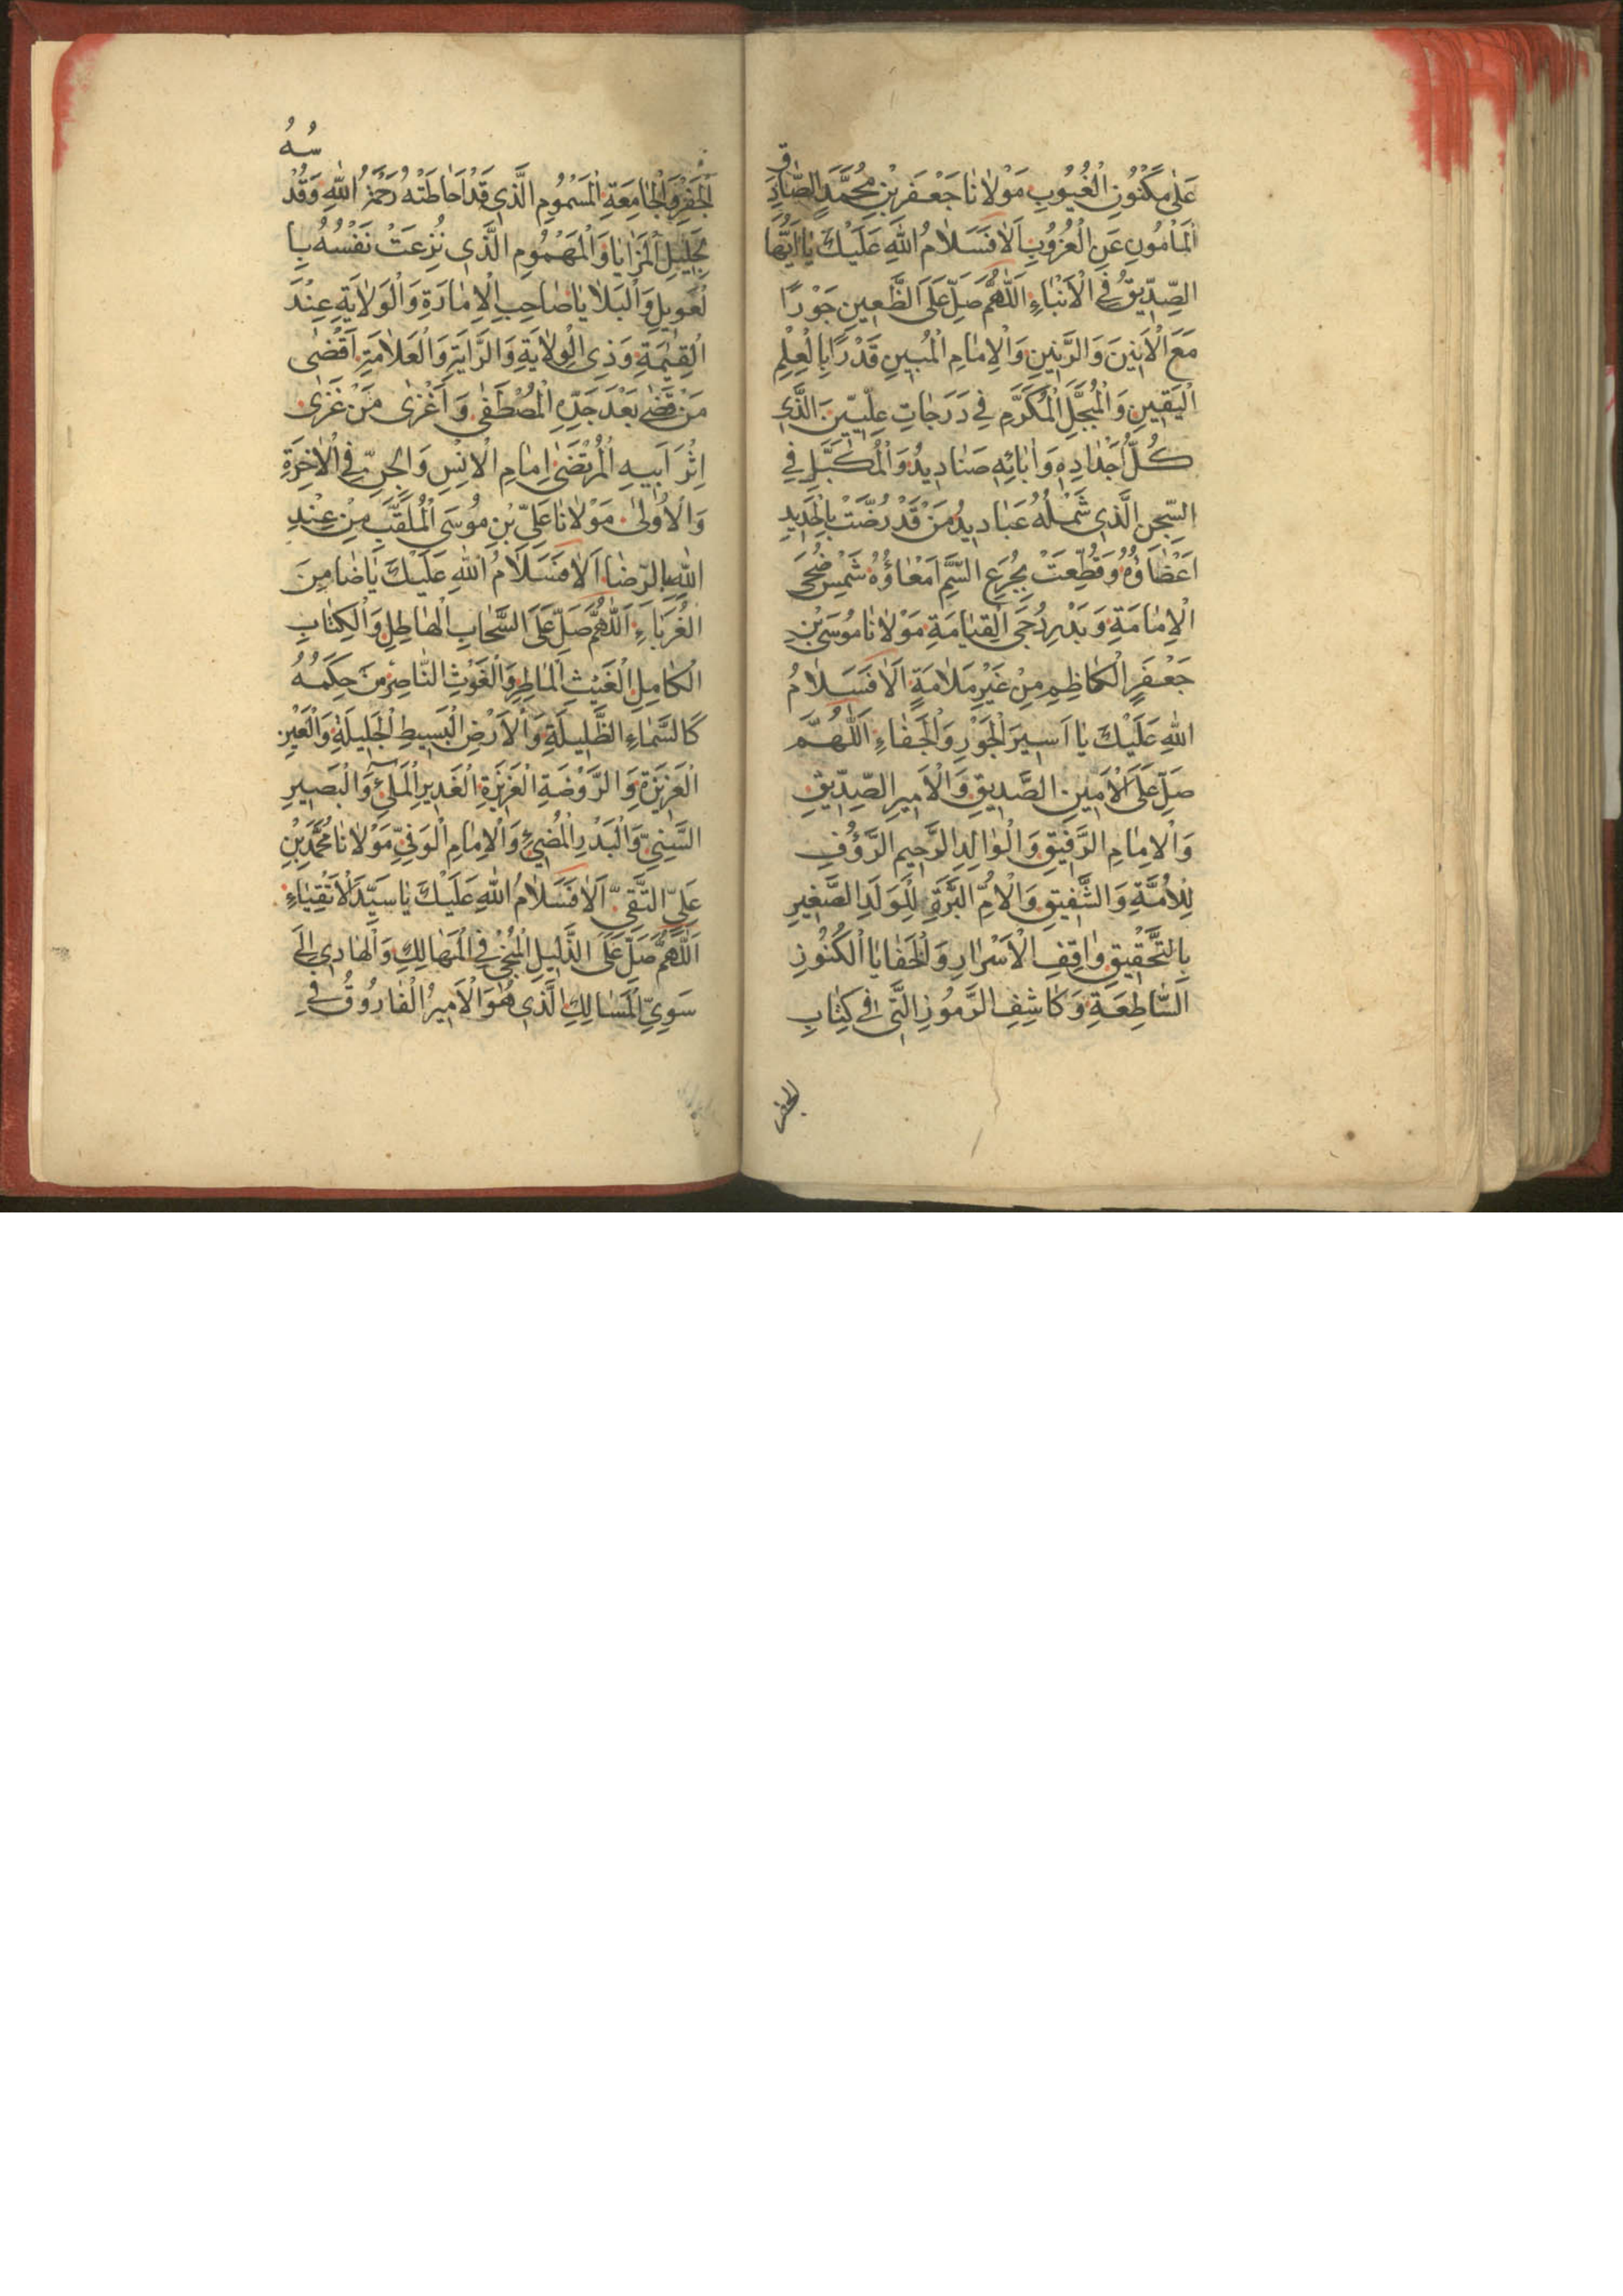 عَلٰى مَكْنُونِ الْغُيُوبِ مَوْلَانَا جَعْفَرِ بْنِ مُحَمَّدٍ الصَّادِقِ
الْمَأْمُونِ عَنِ الْعُزُوبِ اَلَا فَسَلَامُ اللّٰهِ عَلَيْكَ يَا اَيُّهَا
الصِّدِّيقُ فِي الْاَنْبَاءِ اَللّٰهُمَّ صَلِّ عَلَى الظَّعِينِ جَوْرًا
مَعَ الْاَنِينِ وَالرَّنِينِ وَالْاِمَامِ الْمُبِينِ قَدْرًا بِالْعِلْمِ
الْيَقِينِ وَالْمُبَجَّلِ الْمُكَرَّمِ فِي دَرَجَاتِ عِلِّيِّينَ الَّذِي
كُلُّ اَجْدَادِهِ وَاٰبَائِهِ صَنَادِيدُ وَالْمُكَبَّلِ فِي
السِّجْنِ الَّذِي شَمْلُهُ عَبَادِيدُ مَنْ قَدْ رُضَّتْ بِالْحَدِيدِ
اَعْضَاؤُهُ وَقُطِّعَتْ بِجُرَعِ السَّمِّ اَمْعَاؤُهُ شَمْسِ ضُحَى
الْاِمَامَةِ وَبَدْرِ دُجَى الْقِيَامَةِ مَوْلَانَا مُوسَى بْنِ
جَعْفَرٍ الْكَاظِمِ مِنْ غَيْرِ مَلَامَةٍ اَلَا فَسَلَامُ
اللّٰهِ عَلَيْكَ يَا اَسِيرَ الْجَوْرِ وَالْجَفَاءِ اَللّٰهُمَّ
صَلِّ عَلَى الْاَمِينِ الصَّدِيقِ وَالْاَمِيرِ الصِّدِّيقِ
وَالْاِمَامِ الرَّفِيقِ وَالْوَالِدِ الرَّحِيمِ الرَّؤُفِ
لِلْاُمَّةِ وَالشَّفِيقِ وَالْاُمِّ الْبَرَّةِ لِلْوَلَدِ الصَّغِيرِ
بِالتَّحْقِيقِ وَاقِفِ الْاَسْرَارِ وَالْخَفَايَا الْكُنُوزِ
السَّاطِعَةِ وَكَاشِفِ الرُّمُوزِ الَّتِي فِي كِتَابِ
الجفر
الْجَفْرِ وَالْجَامِعَةِ الْمَسْمُومِ الَّذِي قَدْ اَحَاطَتْهُ رَحْمَةُ اللّٰهِ وَقُدْسُهُ
بِجَلِيلِ الْمَزَايَا وَالْمَهْمُومِ الَّذِي نُزِعَتْ نَفْسُهُ بِا
لْعَوِيلِ وَالْبَلَايَا صَاحِبِ الْاِمَارَةِ وَالْوَلَايَةِ عِنْدَ
الْقِيٰمَةِ وَذِي الْوِلَايَةِ وَالرَّايَةِ وَالْعَلَامَةِ اَقْضٰى
مَنْ قَضٰى بَعْدَ جَدِّهِ الْمُصْطَفٰى وَاَغْزٰى مَنْ غَزٰى
اِثْرَ اَبِيهِ الْمُرْتَضٰى اِمَامِ الْاِنْسِ وَالْجِنِّ فِي الْاٰخِرَةِ
وَالْاُولٰى مَوْلَانَا عَلِيِّ بْنِ مُوسَى الْمُلَقَّبِ مِنْ عِنْدِ
اللّٰهِ بِالرِّضَا اَلَا فَسَلَامُ اللّٰهِ عَلَيْكَ يَا ضَامِنَ
الْغُرَبَاءِ اَللّٰهُمَّ صَلِّ عَلَى السَّحَابِ الْهَاطِلِ وَالْكِتَابِ
الْكَامِلِ الْغَيْثِ الْمَاطِرِ وَالْغَوْثِ النَّاصِرِ مَنْ حِكَمُهُ
كَالسَّمَاءِ الظَّلِيلَةِ وَالْاَرْضِ الْبَسِيطِ الْجَلِيلَةِ وَالْعَيْنِ
الْغَزِيزَةِ وَالرَّوْضَةِ الْغَزِيزَةِ الْغَدِيرِ الْمَلِيْءِ وَالْبَصِيرِ
السَّنِيِّ وَالْبَدْرِ الْمُضِيْءِ وَالْاِمَامِ الْوَفِيِّ مَوْلَانَا مُحَمَّدِ بْنِ
عَلِيٍّ التَّقِيِّ اَلَا فَسَلَامُ اللّٰهِ عَلَيْكَ يَا سَيِّدَ الْاَتْقِيَاءِ
اَللّٰهُمَّ صَلِّ عَلَى الدَّلِيلِ الْمُنْجِي فِي الْمَهَالِكِ وَالْهَادِي اِلٰى
سَوِيِّ الْمَسَالِكِ الَّذِي هُوَ الْاَمِيرُ الْفَارُوقُ فِي